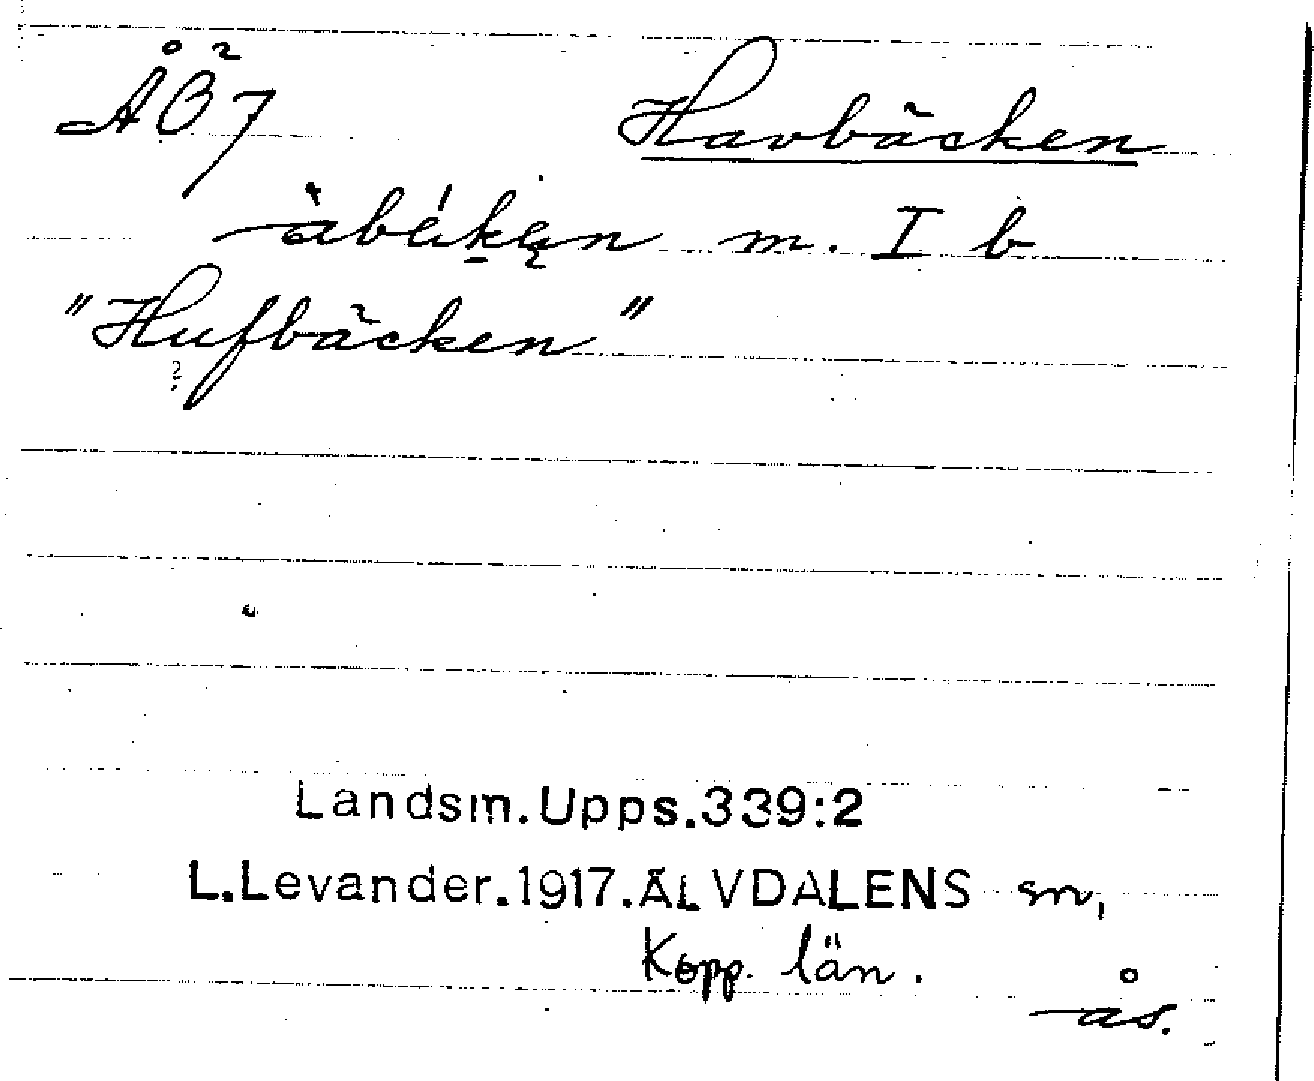 ÅÖ7 Havbäcken
àbékęn m. I b
"Hufbäcken"
Landsm.Upps.339:2
L.Levander.1917.ÄLVDALENS sn,
Kopp. län.
ås.